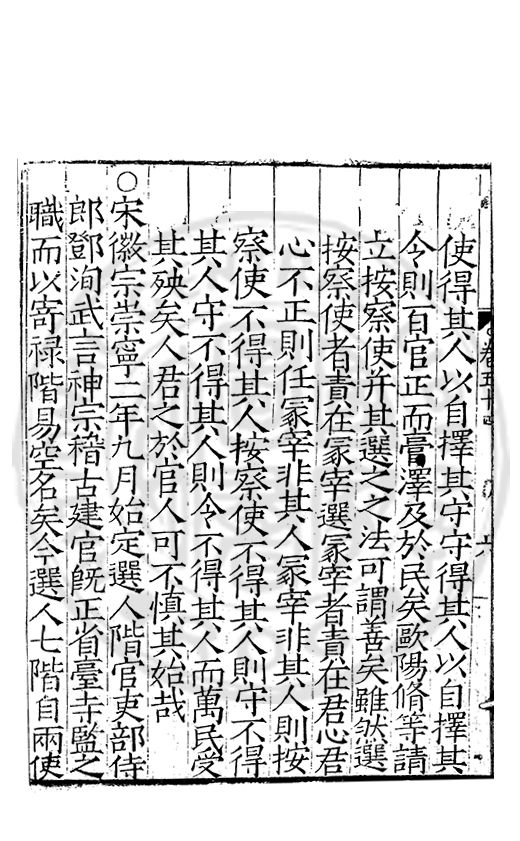 卷五十
六
使得其人以自擇其守守得其人以自擇其
令則百官正而膏澤及於民矣歐陽脩等請
立按察使并其選之之法可謂善矣雖然選
按察使者責在冢宰選冢宰者責在君心君
心不正則任冢宰非其人冢宰非其人則按
察使不得其人按察使不得其人則守不得
其人守不得其人則令不得其人而萬民受
其殃矣人君之於官人可不慎其始哉
○宋徽宗崇寧二年九月始定選人階官吏部侍
郎鄧洵武言神宗稽古建官旣正省臺寺監之
職而以寄祿階易空名矣今選人七階自兩使